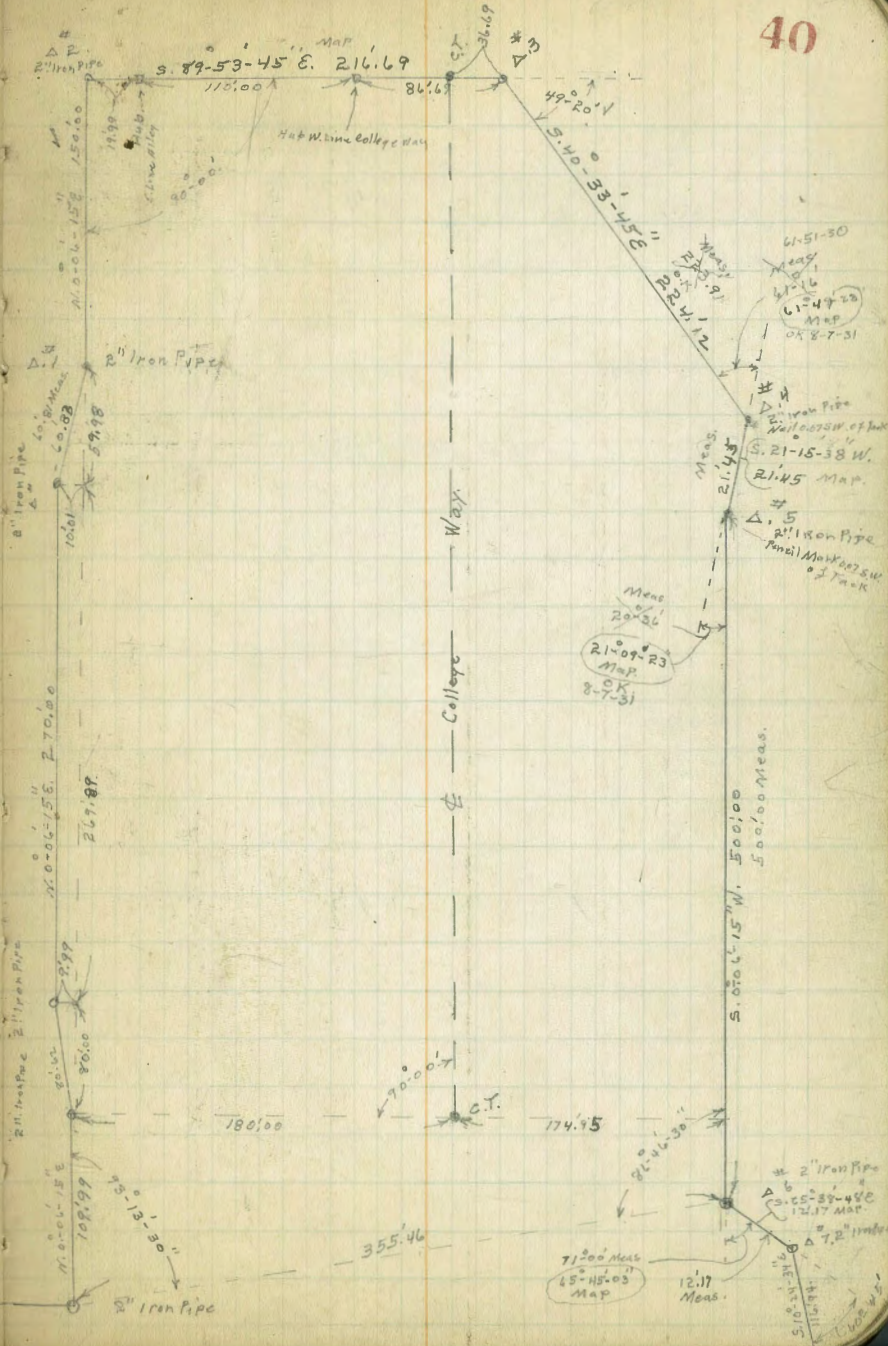 40
# Δ 2.
2" Iron Pipe
Map
S. 89°-53'-45" E. 216.69
110.00
86.69
P.T.
36.69
# Δ.3
49°-20'
19.99
Hub
S. Line Alley
Hub W. Line College Way
90°-00'
N. 0°-06'-15" E 150.00
S. 40°-33'-45" E
224.12
Meas.
O.K.
61-51-30
Meas
61-16
61-49-23
Map
OK 8-7-31
# Δ.1
2" Iron Pipe
60.81 Meas.
60.83
59.98
10.01
2" Iron Pipe
Nail 0.07 S.W. of Tack
S. 21°-15'-38" W.
21.45 Map.
Meas.
21.45
# Δ. 5
2" Iron Pipe
Pencil Mark 0.07 S.W.
of Tack
Meas
20°-36'
21°-09'-23
Map.
OK
8-7-31
College Way
N. 0°-06'-15" E. 270.00
269.89
S. 0°-06'-15" W. 500.00
500.00 Meas.
2" Iron Pipe
9.99
80.62
80.00
2" Iron Pipe
90°-00'
C.T.
180.00
174.95
86°-46'-30"
N. 0°-06'-15" E
109.99
93°-13'-30"
355.46
2" Iron Pipe
# 2" Iron Pipe
Δ 6
S. 65°-38'-48" E
12.17 Map.
Δ 7. 2"
71°-00' Meas
65°-45'-03"
Map
12.17
Meas.